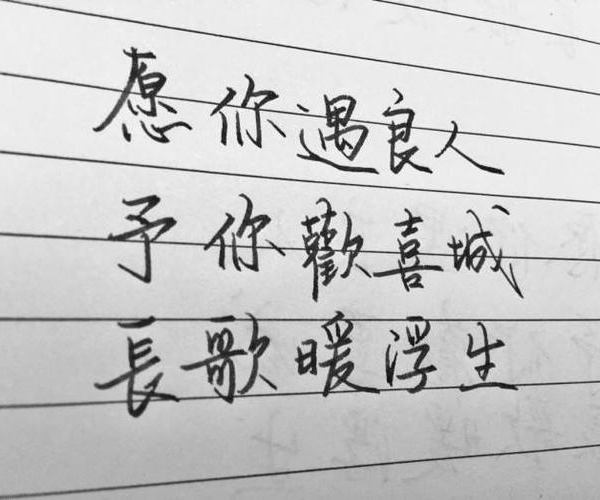 愿你遇良人
予你歡喜城
長歌暖浮生